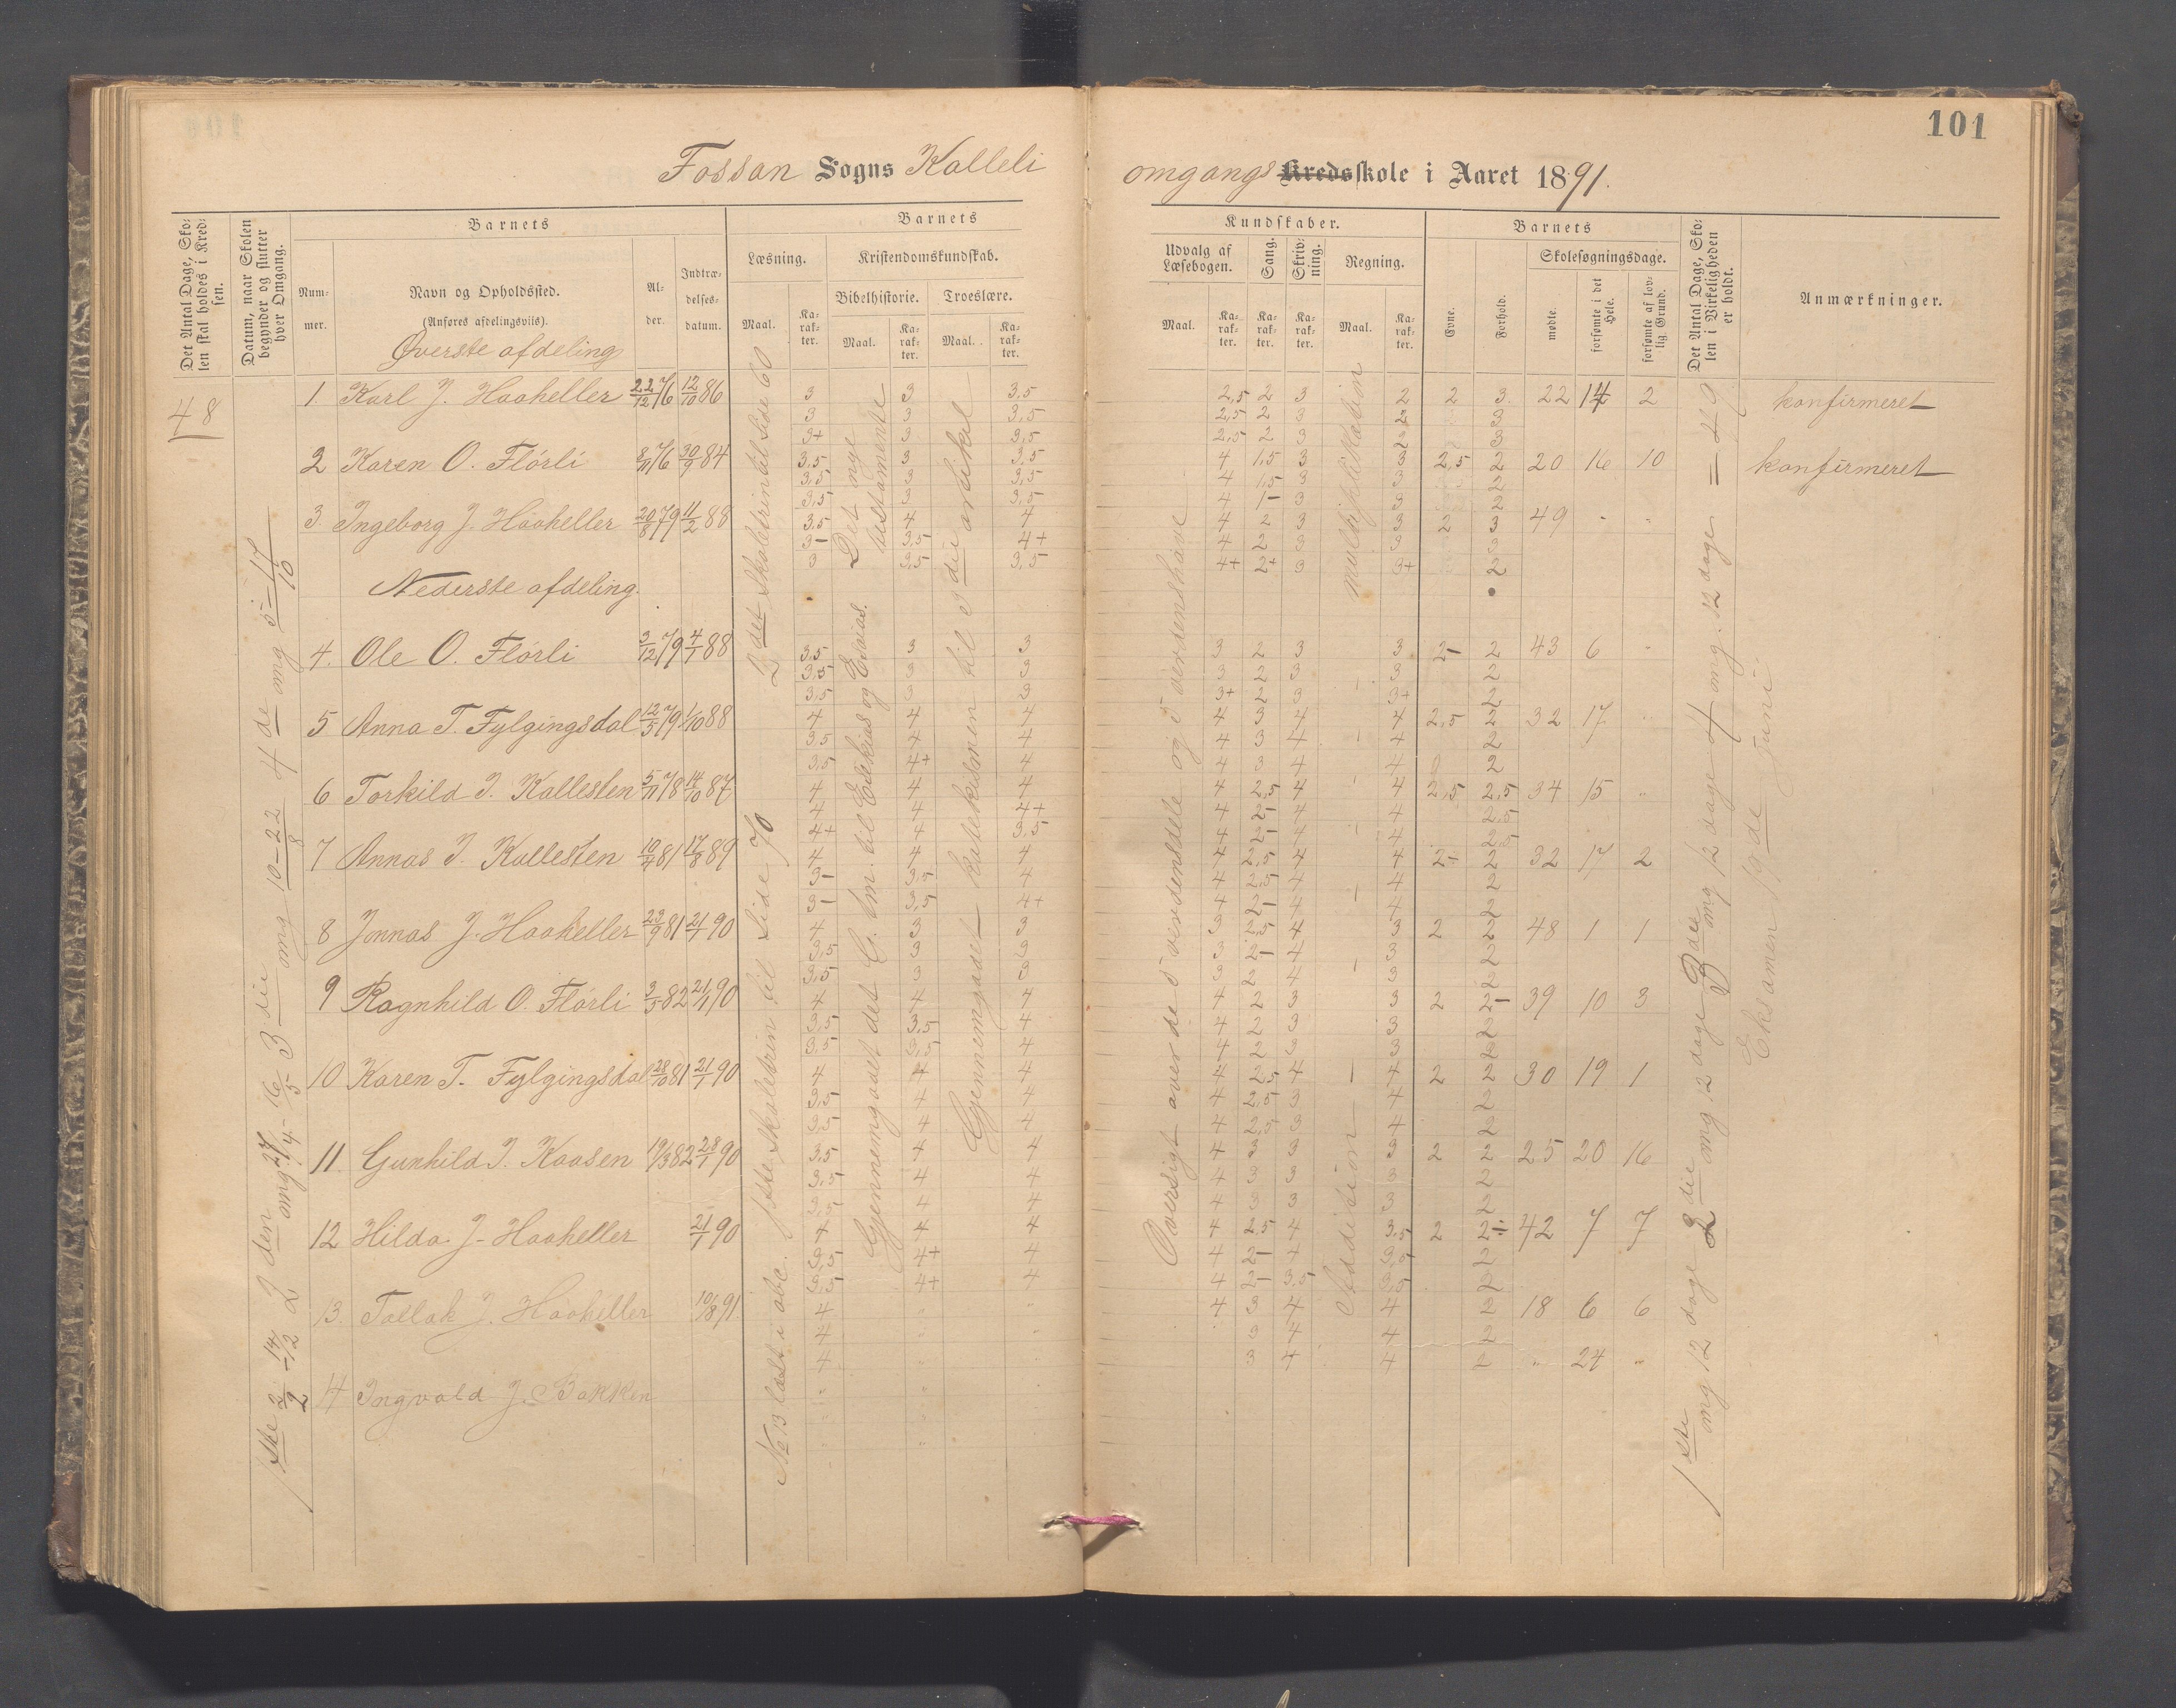 101
Fossan Sogns Kalleli omgangs Kredsskole i Aaret 1891.
Det Antal Dage, Skolen skal holdes i Kredsen.
Datum, naar Skolen begynder og slutter hver Omgang.
Barnets
Nummer.
Navn og Opholdssted.
(Anføres afdelingsviis).
Alder.
Indtrædelsesdatum.
Barnets
Læsning.
Kristendomskundskab.
Bibelhistorie.
Troeslære.
Maal.
Karakter.
Maal.
Karakter.
Maal.
Karakter.
Kundskaber.
Udvalg af Læsebogen.
Sang.
Skrivning.
Regning.
Maal.
Karakter.
Karakter.
Karakter.
Maal.
Karakter.
Barnets
Evne.
Forhold.
Skolesøgningsdage.
mødte.
forsømte i det Hele.
forsømte af lovlig Grund.
Det Antal Dage, Skolen i Virkeligheden er holdt.
Anmærkninger.
48
Øverste afdeling
1 Karl J. Haaheller 22/12 76 12/10 86 3 3 3,5 2,5 2 3 2 2 3 22 14 2 konfirmeret
3 3 3,5 2,5 2 3 2 3
3+ 3 3,5 2,5 2 3 2 3
2 Karen O. Flörli 8/11 76 30/9 84 3,5 3 3,5 4 1,5 3 3 2,5 2 20 16 10 konfirmeret
3,5 3 3,5 4 1,5 3 3 2
3,5 3 3,5 4 1- 3 3 2
3 Ingeborg J. Haaheller 20/8 79 11/2 88 3,5 4 4 4 2 3 3 2 3 49 " "
3- 3,5 4+ 4 2 3 3 3
3 3,5 3,5 4+ 2+ 3 3+ 2
Nederste afdeling.
4. Ole O. Flörli 3/12 79 4/1 88 3,5 3 3 3 2 3 3 2- 2 43 6 "
3,5 3 3 3 2 3 3 2
3,5 3 3 3+ 2 3 3+ 2
5 Anna T. Fylgingsdal 12/5 79 1/10 88 4 4 4 4 3 4 4 2,5 2 32 17 "
3,5 4 4 4 3 4 4 2
3,5 4+ 4 4 3 4 4 2
6 Torkild I. Kallesten 5/11 78 14/10 87 4 4 4 4 2,5 4 4 2,5 2,5 34 15 "
4 4 4+ 4 2- 4 4 2,5
4+ 4 3,5 4 2- 4 4 2,5
7 Annas I. Kallesten 10/4 81 17/8 89 4 4 4 4 2,5 4 4 2+ 2 32 17 2
3- 3,5 4 4 2,5 4 4 2
3- 3,5 4+ 4 2- 4 4 2
8 Jonnas J. Haaheller 23/9 81 21/1 90 4 3 3 3 2,5 4 3 2 2 48 1 1
3,5 3 3 3 2- 4 3 2
3,5 3 3 3 2 4 3 2
9 Ragnhild O. Flörli 3/5 82 21/1 90 4 4 4 4 2 3 3 2 2- 39 10 3
3,5 3,5 4 4 2 3 3 2
3,5 3,5 4 4 2 3 3 2
10 Karen T. Fylgingsdal 28/10 81 21/1 90 4 4 4 4 2,5 4 4 2 2 30 19 1
3,5 4 4 4 2,5 3 4 2
3,5 4 4 4 2,5 3 4 2
11. Gunhild I. Kaasen 19/3 82 28/1 90 3,5 4 4 4 3 3 3 2 2 25 20 16
3,5 4 4 4 3 3 3 2
3,5 4 4 4 3 3 3 2
12 Hilda J- Haaheller 21/1 90 4 4 4 4 2,5 4 3,5 2 2÷ 42 7 7
3,5 4+ 4 4 2- 4 3,5 2
3,5 4+ 4 4 2- 3,5 3,5 2
13. Tallak J. Haaheller 10/8 91 4 " " 4 3 4 4 2 18 6 6
4 " " 3 4 4 2
4 " 3 4 4 2 " 24 "
14 Ingvald J. Bakken
1ste 2/2 - 14/2 2den omg. 27/4 - 16/5 3die omg 10-22/8 4de omg 5-17/10
2det Skoletrin til Side 60
1ste Skoletrin til Side 70
No 13 læst i abc.
Det nye testamente
Gjennemgaaet det G. tm. til Esekias og Esaias.
Gjennemgaaet katekismen til 3die artikel
Oversigt over de 5 verdensdele og 5 verdenshave
multiplikation
Addition
1ste omg 12 dage 2die omg 12 dage 3die omg 12 dage 4 omg. 12 dage = 49
Eksamen 13de Juni